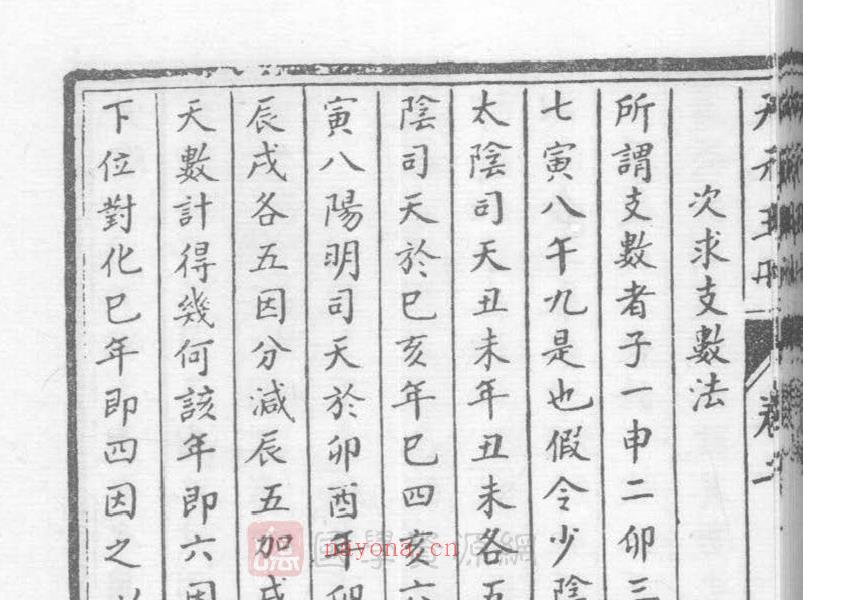 次求支數法
所謂支數者子一申二卯三
七寅八午九是也假令少陰
太陰司天丑未年丑未各五
陰司天於巳亥年巳四亥六
寅八陽明司天於卯酉年卯
辰戌各五因分減辰五加戌
天數計得幾何該年即六因
下位對化巳年即四因之
國學資源網
nayona.cn